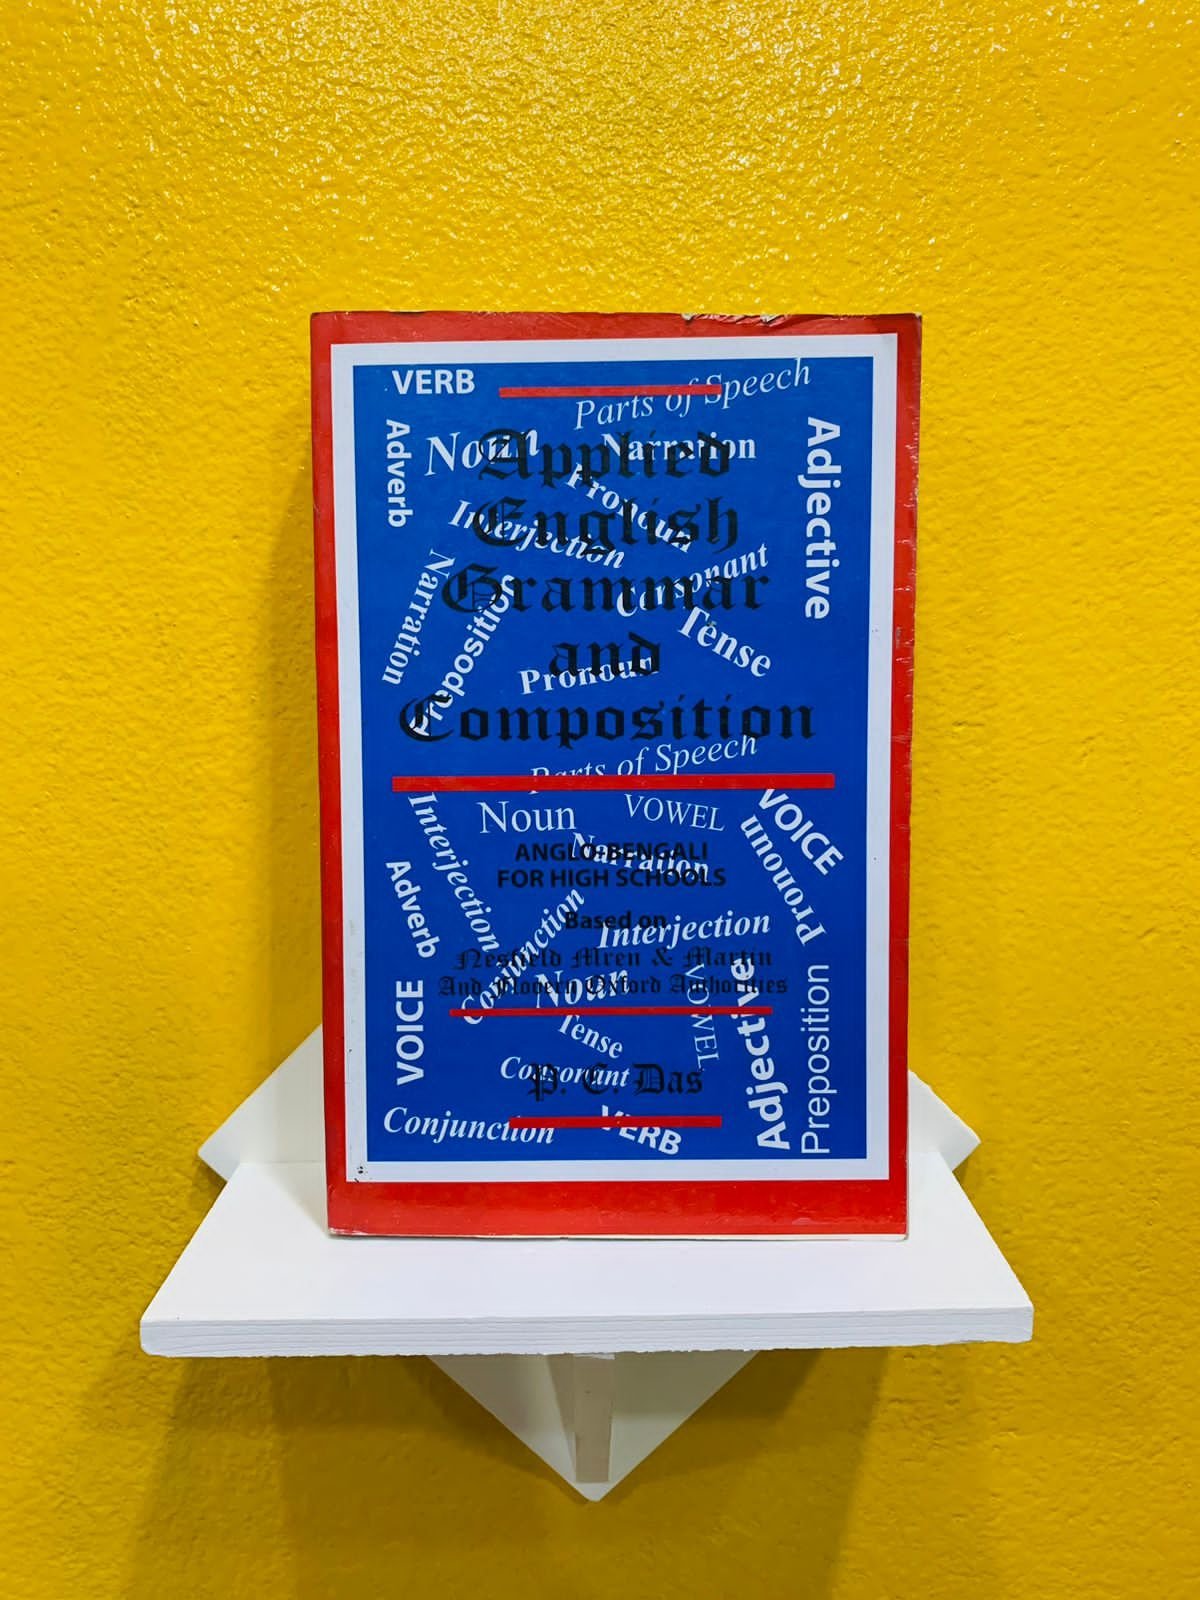 VERB
Parts of Speech
Adverb
Noun
Narration
Adjective
Applied
Pronoun
English
Interjection
Consonant
Grammar
Narration
Preposition
Tense
and
Pronoun
Composition
Parts of Speech
Interjection
Noun
VOWEL
VOICE
Pronoun
ANGLO-BENGALI
Narration
FOR HIGH SCHOOLS
Adverb
Conjunction
Based on
Interjection
Nesfield Wren & Martin
And Modern Oxford Authorities
Noun
VOWEL
Adjective
Preposition
VOICE
Tense
Consonant
P. C. Das
Conjunction
VERB